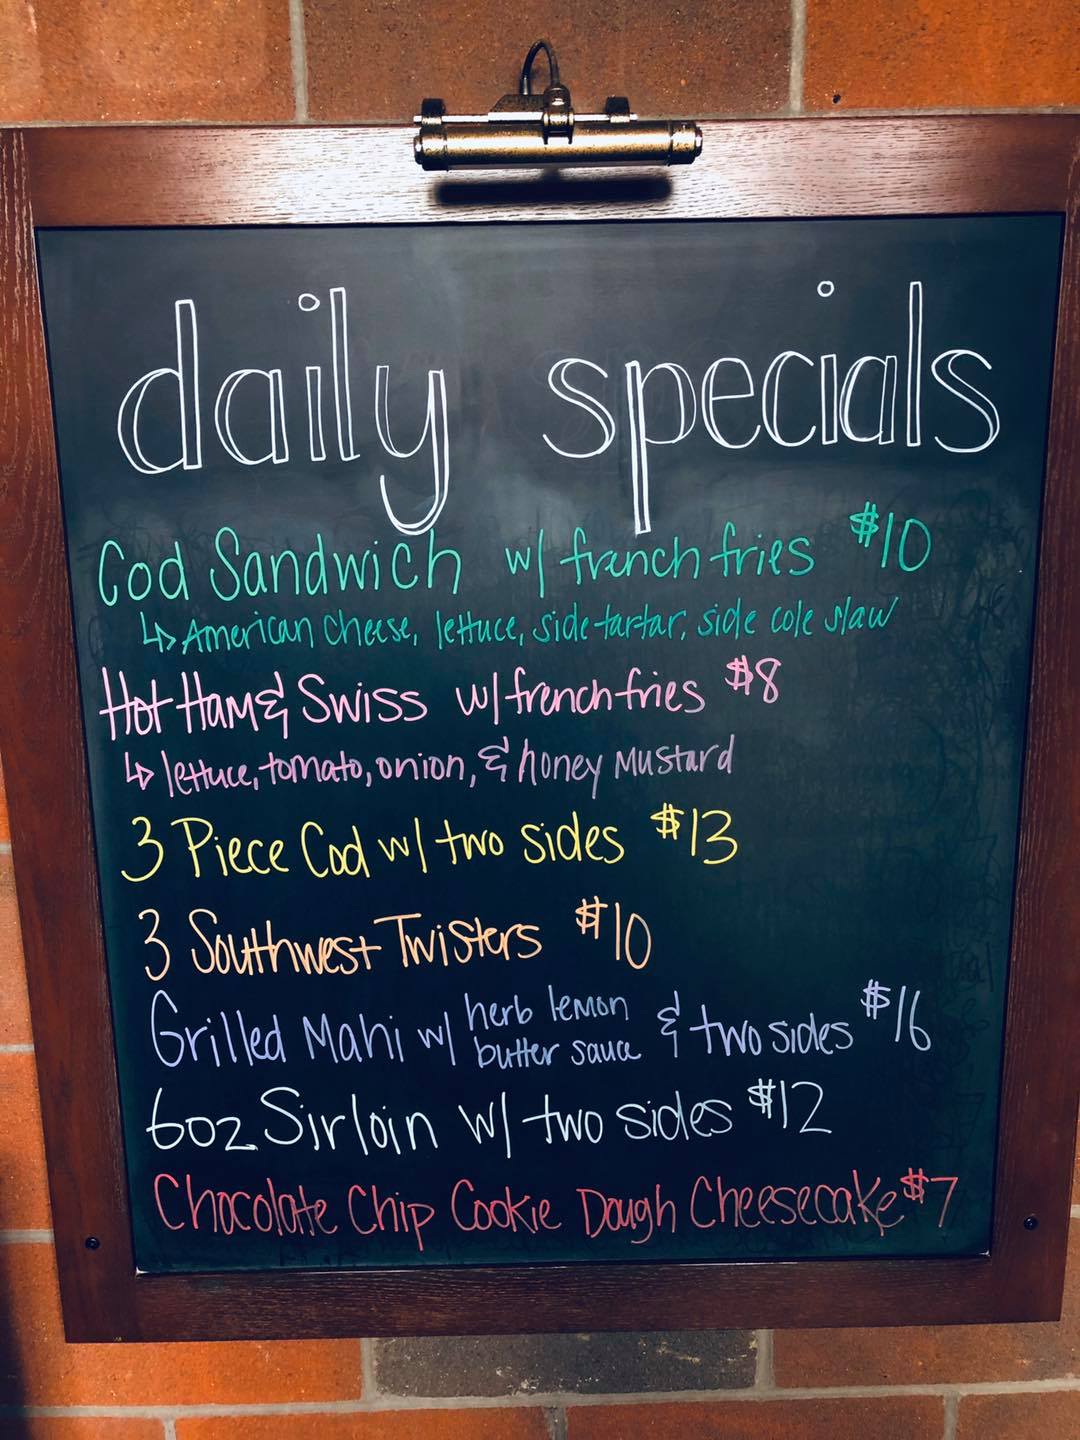 daily specials
Cod Sandwich w/ french fries $10
↳ American Cheese, lettuce, side tartar, side cole slaw
Hot Ham & Swiss w/ french fries $8
↳ lettuce, tomato, onion, & honey Mustard
3 Piece Cod w/ two sides $13
3 Southwest Twisters $10
Grilled Mahi w/ herb lemon butter sauce & two sides $16
6oz Sirloin w/ two sides $12
Chocolate Chip Cookie Dough Cheesecake $7